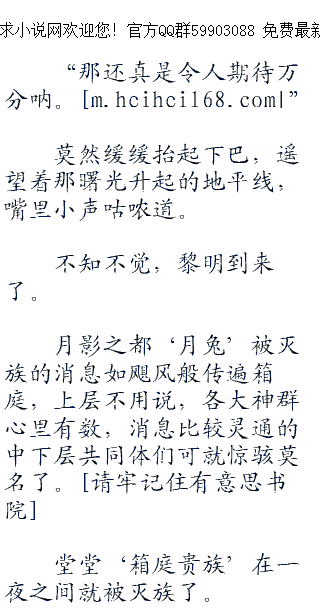 求小说网欢迎您！官方QQ群59903088 免费最新
“那还真是令人期待万
分呐。[m.hcihci168.com|”
莫然缓缓抬起下巴，遥
望着那曙光升起的地平线，
嘴里小声咕哝道。
不知不觉，黎明到来
了。
月影之都‘月兔’被灭
族的消息如飓风般传遍箱
庭，上层不用说，各大神群
心里有数，消息比较灵通的
中下层共同体们可就惊骇莫
名了。[请牢记住有意思书
院]
堂堂‘箱庭贵族’在一
夜之间就被灭族了。